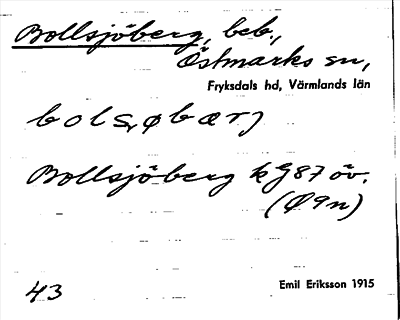 Bollsjöberg, beb.,
Östmarks sn,
Fryksdals hd, Värmlands län
Bollsjöberg k G87 öv.
(Ø9n)
43
Emil Eriksson 1915